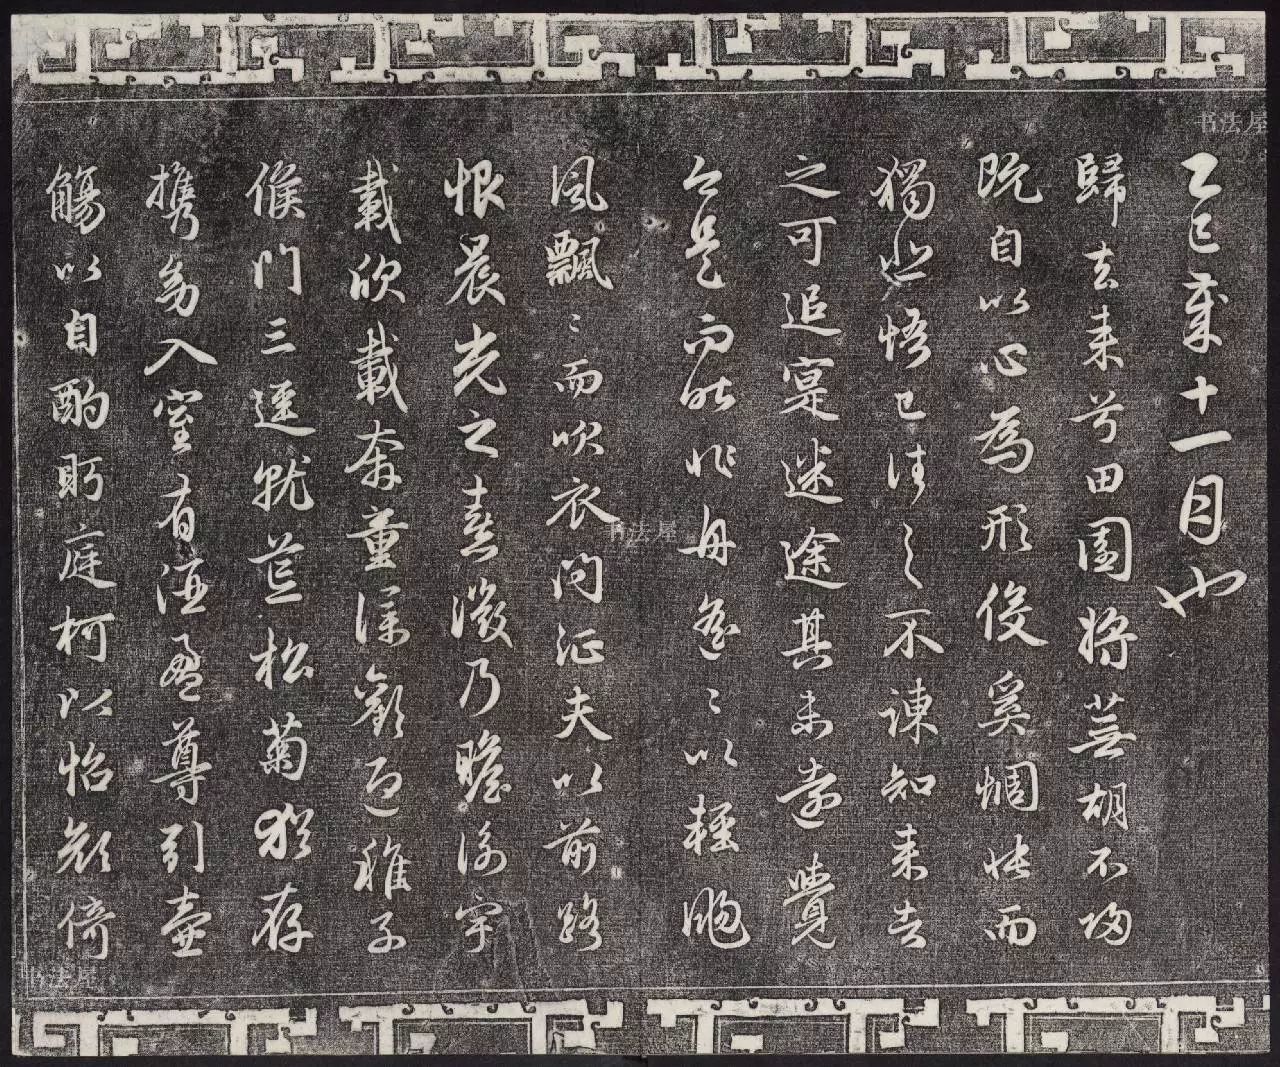 乙巳歲十一月也
歸去来兮田園將蕪胡不歸
既自以心為形役奚惆悵而
獨悲悟已往之不諫知来者
之可追寔迷途其未遠覺
今是而昨非舟遙〻以輕颺
風飄〻而吹衣問征夫以前路
恨晨光之熹微乃瞻衡宇
載欣載奔童僕歡迎稚子
候門三逕就荒松菊猶存
携幼入室有酒盈尊引壺
觴以自酌眄庭柯以怡顏倚
书法屋
书法屋
书法屋